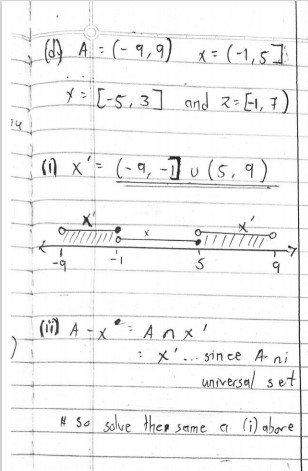 (d) A = (-9,9) x = (-1,5]
y = [-5,3] and z = [-1,7)
(i) x' = (-9,-1] ∪ (5,9)
x' x x'
-9 -1 5 9
(ii) A - x = A ∩ x'
= x'... since A ni
universal set
# So solve then same a (i) above